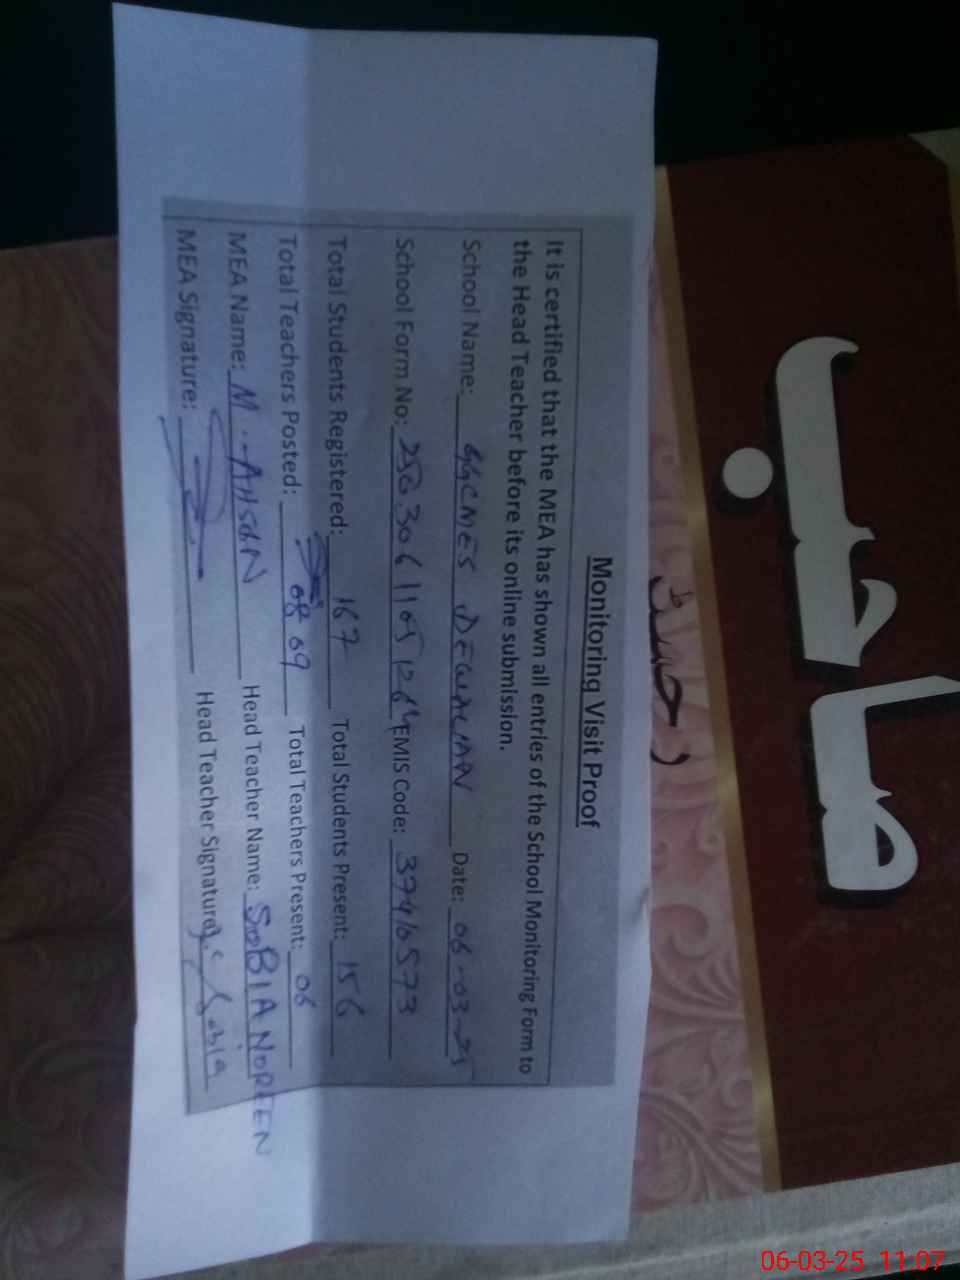 Monitoring Visit Proof
It is certified that the MEA has shown all entries of the School Monitoring Form to
the Head Teacher before its online submission.
School Name: GGCMES DEWALIAN Date: 06-03-25
School Form No: EMIS Code: 37410573
Total Students Registered: 167 Total Students Present: 156
Total Teachers Posted: 09 Total Teachers Present: 06
MEA Name: M. AHSAN Head Teacher Name: SOBIA NOREEN
MEA Signature: Head Teacher Signature: Sobia
صاحب
06-03-25 11:07